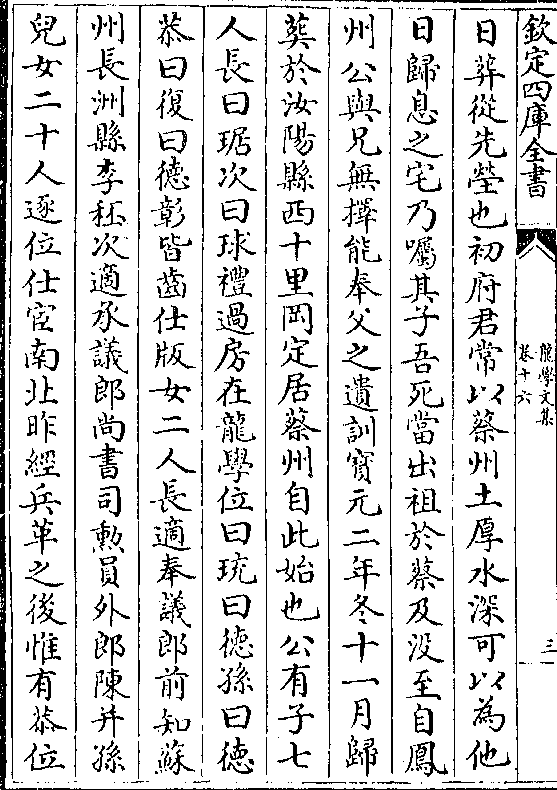 欽定四庫全書
龍學文集
卷十六
三
日葬從先塋也初府君常以蔡州土厚水深可以為他
日歸息之宅乃囑其子吾死當出祖於蔡及没至自鳳
州公與兄無擇能奉父之遺訓寳元二年冬十一月歸
葬於汝陽縣西十里岡定居蔡州自此始也公有子七
人長曰琚次曰球禮過房在龍學位曰珫曰德孫曰德
恭曰復曰德彰皆齒仕版女二人長適奉議郎前知蘇
州長洲縣李秠次適承議郎尚書司勲員外郎陳并孫
兒女二十人逐位仕宦南北昨經兵革之後惟有恭位